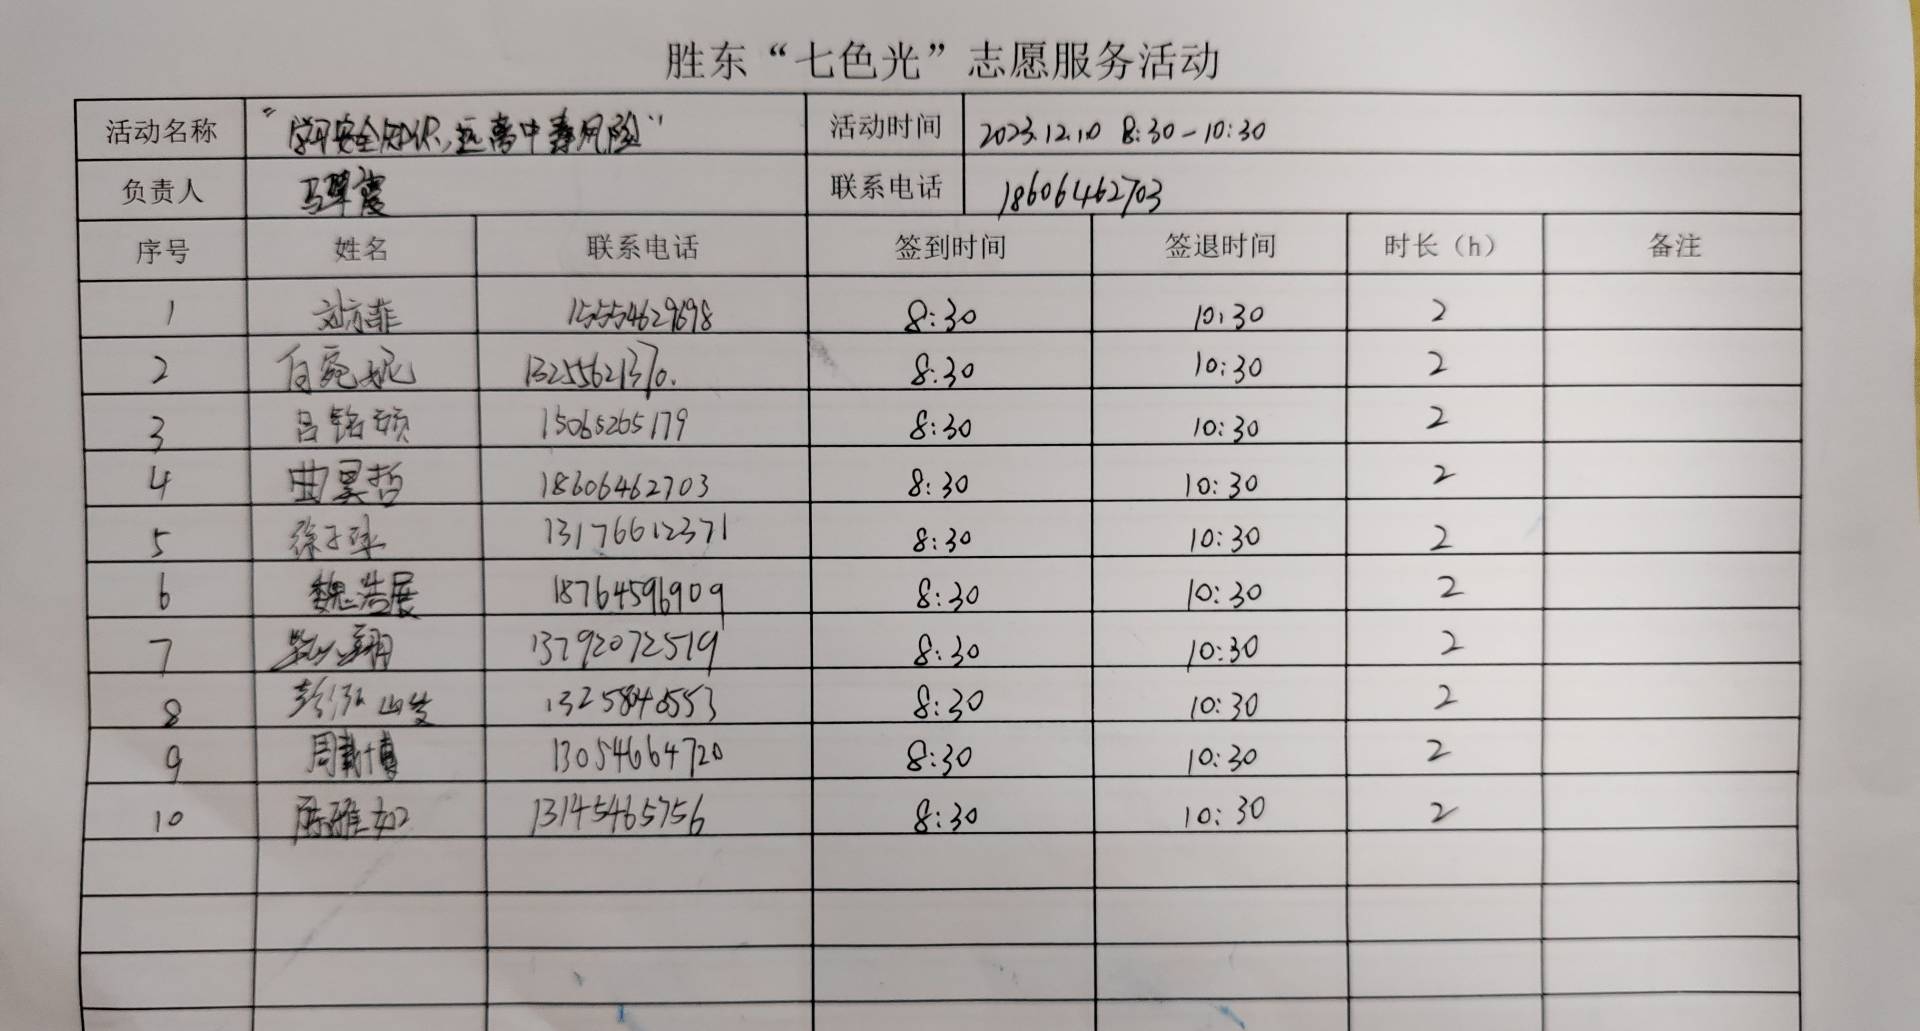 胜东“七色光”志愿服务活动
活动名称 “学习安全知识,远离中毒风险” 活动时间 2023.12.10 8:30-10:30
负责人 马翠霞 联系电话 18606462703
序号 姓名 联系电话 签到时间 签退时间 时长（h） 备注
1 刘亦菲 15554629698 8:30 10:30 2
2 白宛妮 13255621370. 8:30 10:30 2
3 吕铭硕 15065265179 8:30 10:30 2
4 曲昊哲 18606462703 8:30 10:30 2
5 徐子琢 13176612371 8:30 10:30 2
6 魏浩展 18764596909 8:30 10:30 2
7 13792072519 8:30 10:30 2
8 1325840553 8:30 10:30 2
9 周载博 13054664720 8:30 10:30 2
10 陈雅如 13145465756 8:30 10:30 2